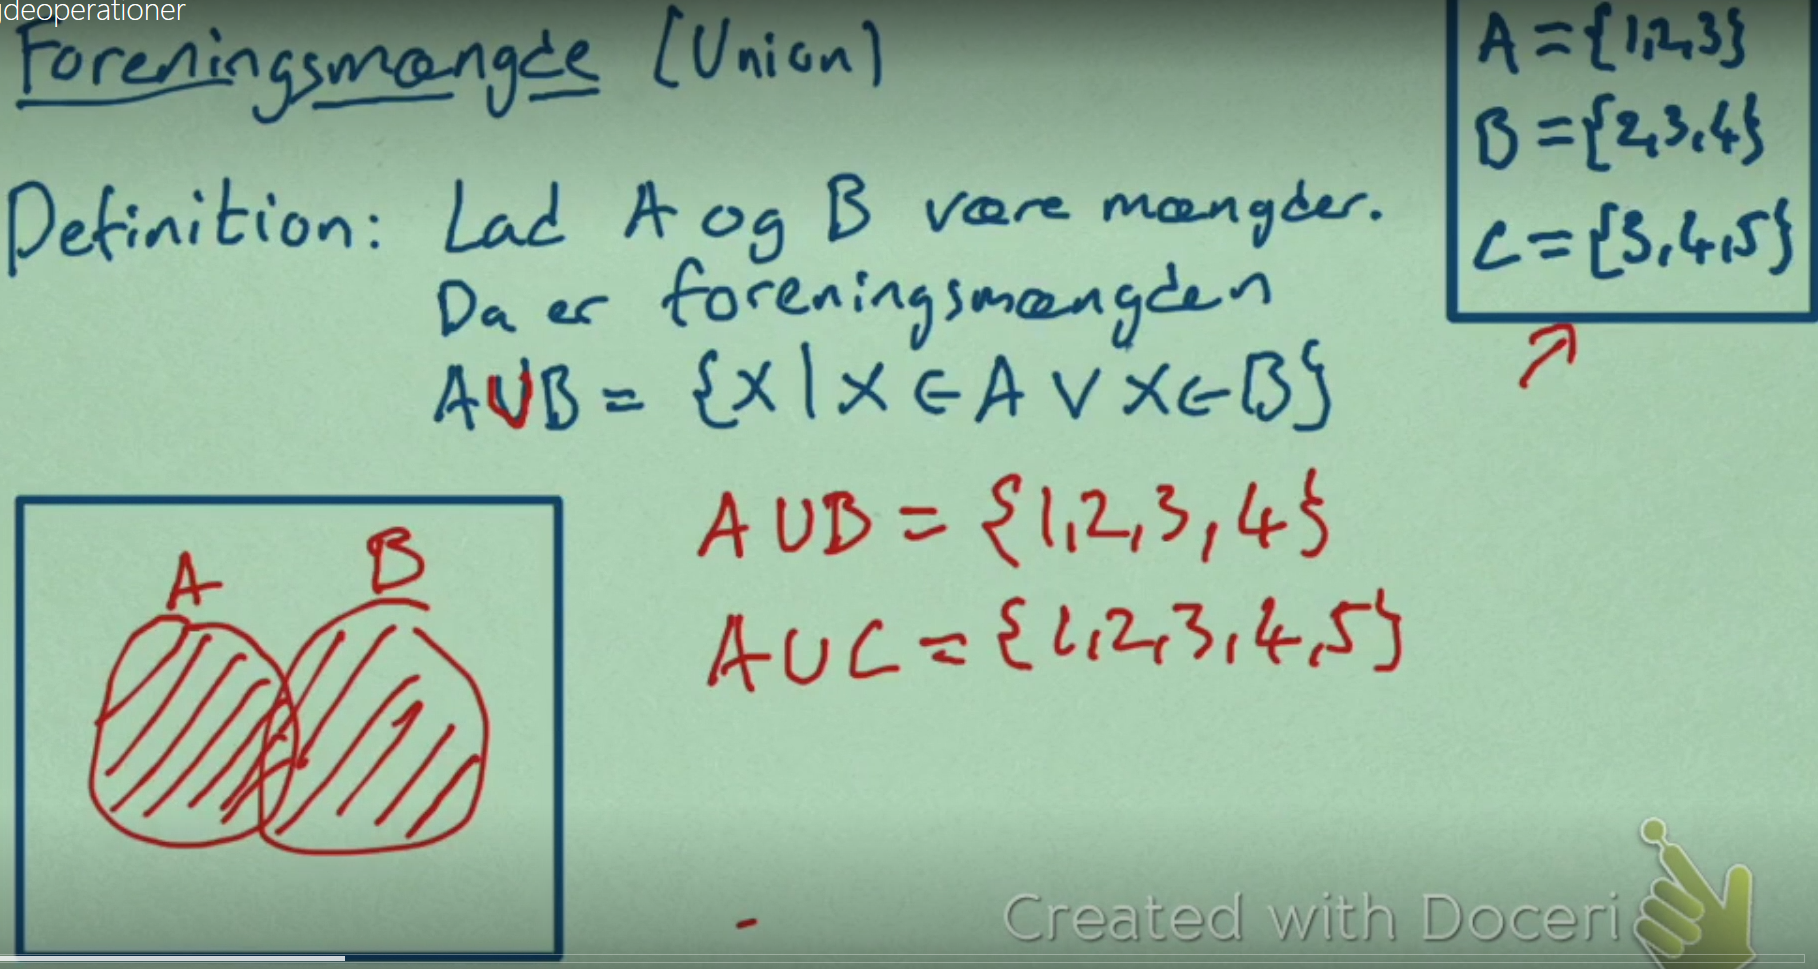 gdeoperationer
Foreningsmængde (Union)
A = {1,2,3}
B = {2,3,4}
C = {3,4,5}
Definition: Lad A og B være mængder.
Da er foreningsmængden
A∪B = {x | x ∈ A ∨ x ∈ B}
A ∪ B = {1,2,3,4}
A ∪ C = {1,2,3,4,5}
A
B
Created with Doceri